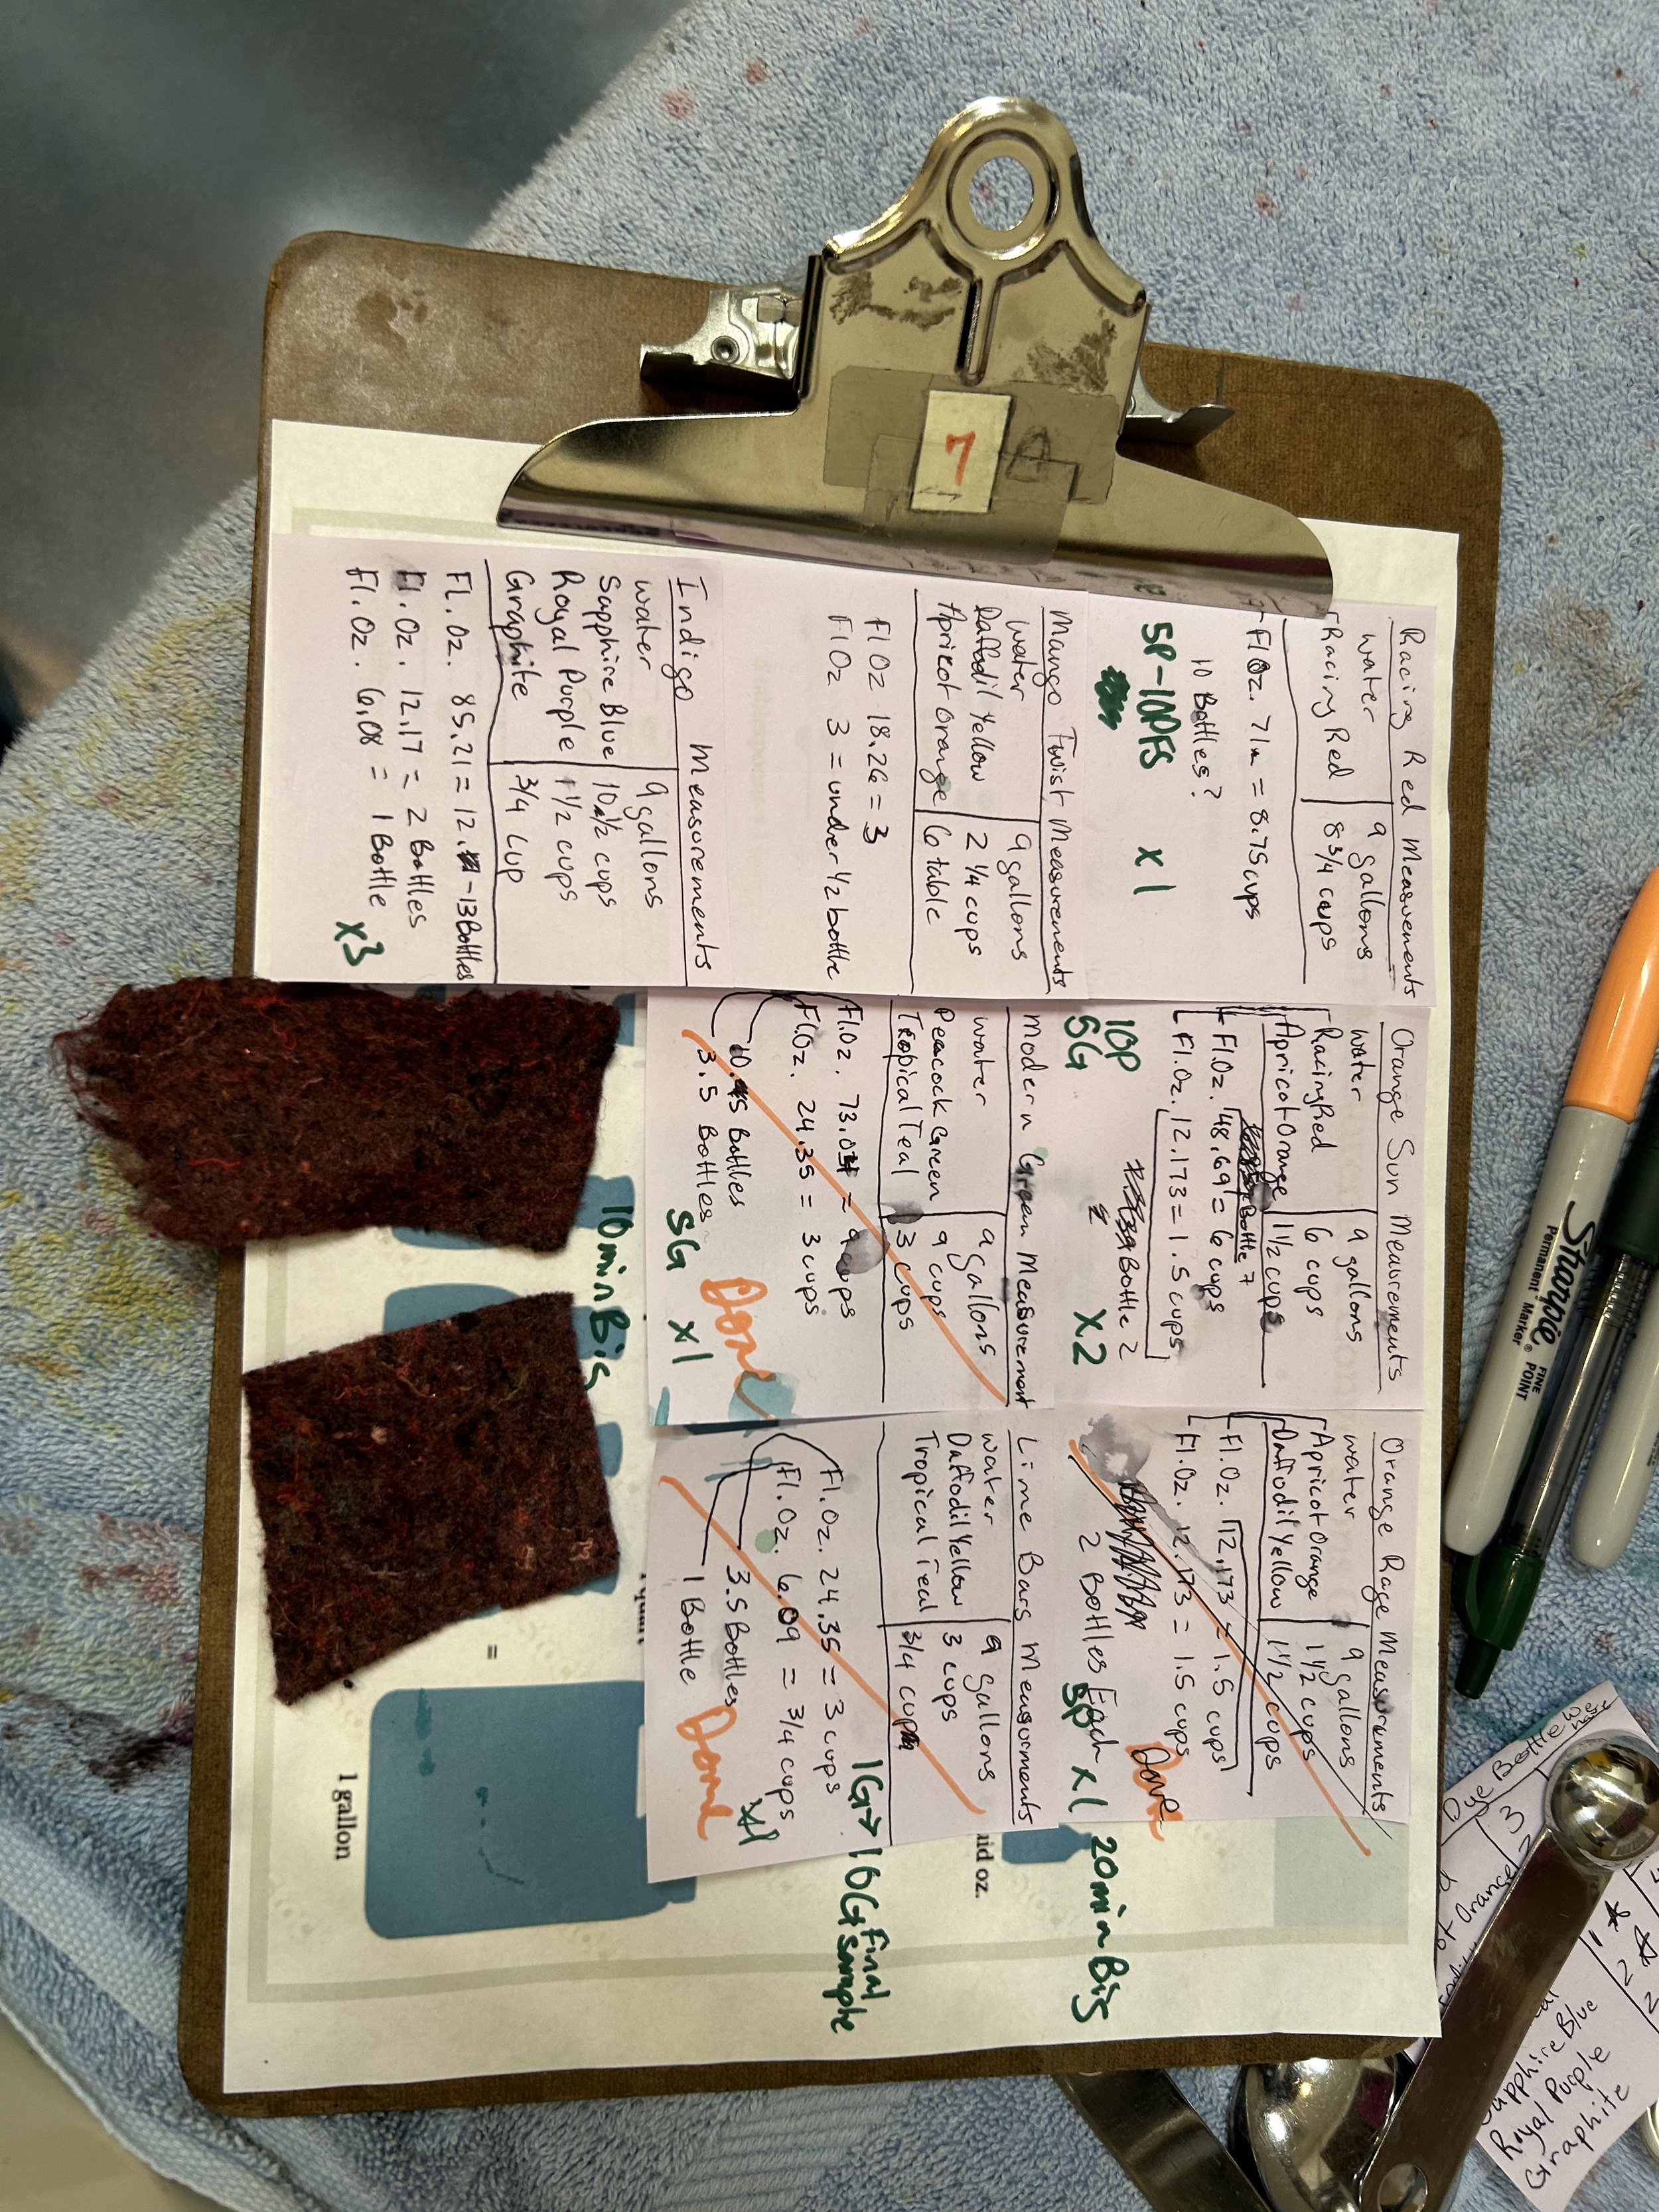 7
Racing Red Measurements
water | 9 gallons
Racing Red | 8 3/4 cups
Fl Oz. 71 = 8.75 cups
10 Bottles?
5P-10PFS x1
Mango Twist Measurements
water | 9 gallons
Daffodil Yellow | 2 1/4 cups
Apricot Orange | 6 table
Fl Oz 18.26 = 3
Fl Oz 3 = under 1/2 bottle
Indigo Measurements
water | 9 gallons
Sapphire Blue | 10 1/2 cups
Royal Purple | 1 1/2 cups
Graphite | 3/4 cup
FL.Oz. 85.21 = 12. -13 Bottles
Fl.Oz. 12.17 = 2 Bottles
Fl.Oz. 6.08 = 1 Bottle
x3
Orange Sun Measurements
water | 9 gallons
Racing Red | 6 cups
Apricot Orange | 1 1/2 cups
Bottle 7
Fl.Oz. 48.69 = 6 cups
Fl.Oz. 12.173 = 1.5 cups
Bottle 2
10P
5G x2
Modern Green Measurement
water | 9 gallons
Peacock Green | 9 cups
Tropical Teal | 3 cups
Fl.Oz. 73.04 = 9 cups
Fl.Oz. 24.35 = 3 cups
10.5 Bottles
3.5 Bottles
Done
5G x1
Orange Rage Measurements
water | 9 gallons
Apricot Orange | 1 1/2 cups
Daffodil Yellow | 1 1/2 cups
Fl.Oz. 12.173 = 1.5 cups
Fl.Oz. 12.173 = 1.5 cups
Done
2 Bottles Each
5P x1
20minBig
Lime Bars Measurements
water | 9 gallons
Daffodil Yellow | 3 cups
Tropical Teal | 3/4 cup
Fl.Oz. 24.35 = 3 cups
Fl.Oz. 6.09 = 3/4 cups
3.5 Bottles
1 Bottle
Done
x1
1G→10G Final
sample
10minBig
uid oz.
=
1 gallon
Sharpie
Permanent Marker
FINE
POINT
Dye Bottle we
have
3
Orange
Sapphire Blue
Royal Purple
Graphite
1
2
2